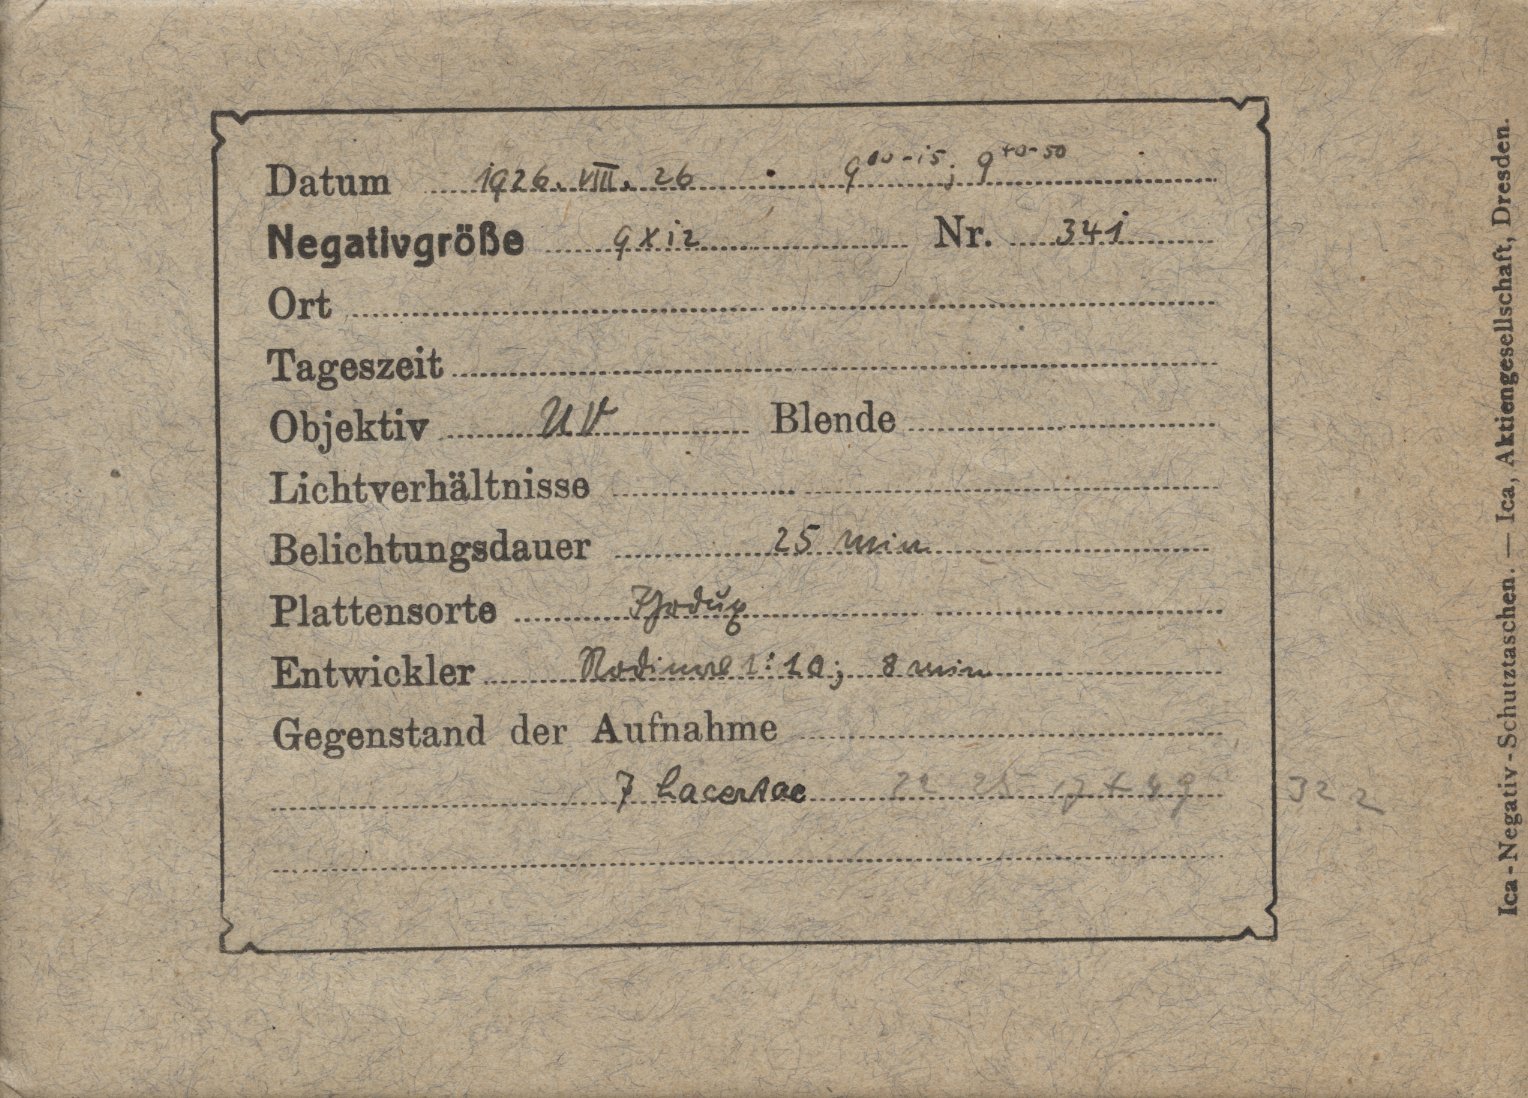 Datum 1926. VIII. 26 9⁰⁰⁻¹⁵; 9⁴⁰⁻⁵⁰
Negativgröße 9x12 Nr. 341
Ort
Tageszeit
Objektiv UV Blende
Lichtverhältnisse
Belichtungsdauer 25 min
Plattensorte
Entwickler 8 min
Gegenstand der Aufnahme
7 Lacertae
Ica-Negativ-Schutztaschen. — Ica, Aktiengesellschaft, Dresden.